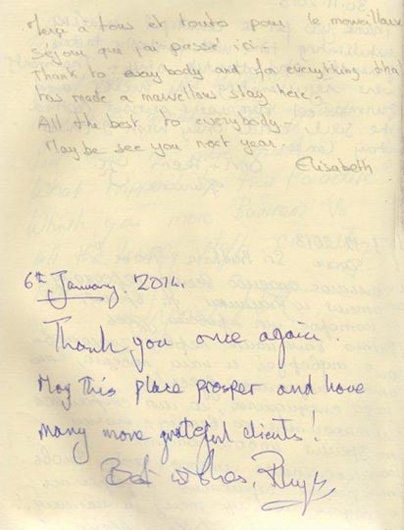 Merci à tous et toutes pour le merveilleux
séjour que j'ai passé ici.
Thank to everybody and for everything that
has made a marvellous stay here -
All the best to everybody -
Maybe see you next year
Elisabeth
6th January. 2014.
Thank you once again.
May this place prosper and have
many more grateful clients!
Best wishes,